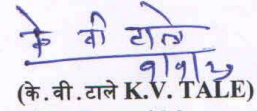 के वी टाले
(के.वी.टाले K.V. TALE)